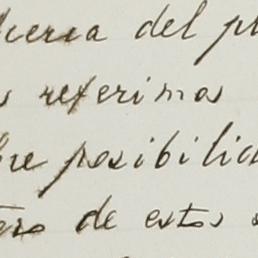 acerca del p
s referimos
bre posibilid
tero de estos s